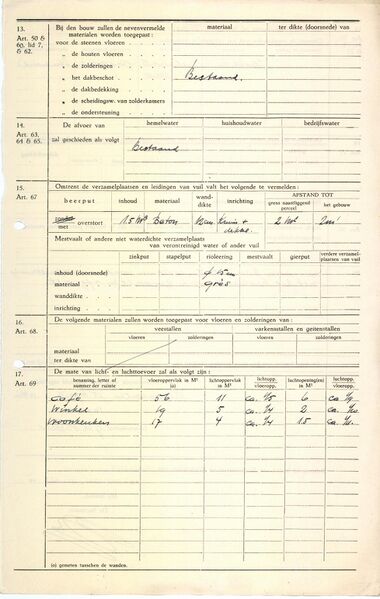 13.
Art. 50 & 60, lid 7, & 62.
Bij den bouw zullen de nevenvermelde materialen worden toegepast:
materiaal
ter dikte (doorsnede) van
voor de steenen vloeren
„ de houten vloeren
„ de zolderingen
„ het dakbeschot
Bestaand.
„ de dakbedekking
„ de scheidingsw. van zolderkamers
„ de ondersteuning
14.
Art. 63, 64 & 65.
De afvoer van
hemelwater
huishoudwater
bedrijfswater
zal geschieden als volgt
Bestaand
15.
Art. 67
Omtrent de verzamelplaatsen en leidingen van vuil valt het volgende te vermelden:
beerput
inhoud
materiaal
wand-dikte
inrichting
AFSTAND TOT
grens naastliggend perceel
het gebouw
zonder
met overstort
1.5 M3
Beton
2 M
2 m
Mestvaalt of andere niet waterdichte verzamelplaats van verontreinigd water of ander vuil
ziekput
stapelput
rioleering
mestvaalt
gierput
verdere verzamel-plaatsen van vuil
inhoud (doorsnede)
materiaal
grès
wanddikte
inrichting
16.
Art. 68.
De volgende materialen zullen worden toegepast voor vloeren en zolderingen van:
veestallen
varkensstallen en geitenstallen
vloeren
zolderingen
vloeren
zolderingen
materiaal
ter dikte van
17.
Art. 69
De mate van licht- en luchttoevoer zal als volgt zijn:
benaming, letter of nummer der ruimte
vloeroppervlak in M² (o)
lichtoppervlak in M²
lichtopp. vloeropp.
luchtopening(en) in M²
luchtopp. vloeropp.
Café 56 11 ca. 1/5 6 ca. 1/9
Winkel 19 5 ca. 1/4 2 ca. 1/10
Woonkeuken 17 4 ca. 1/4 1.5 ca. 1/11
(o) gemeten tusschen de wanden.